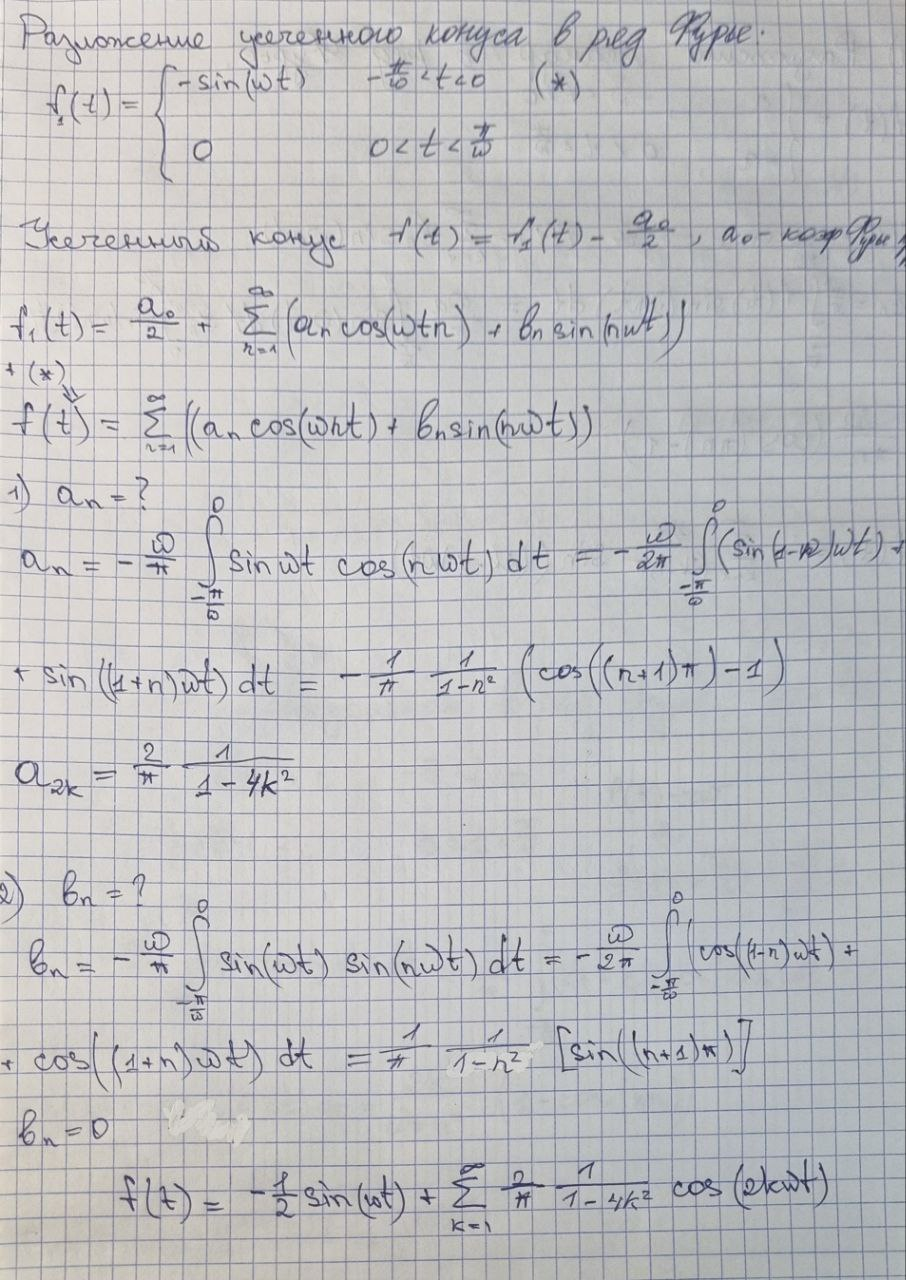 Разложение усеченного конуса в ряд Фурье.
f₁(t) = { -sin(ωt)   -π/ω < t < 0   (*)
0   0 < t < π/ω
Усеченный конус f(t) = f₁(t) - a₀/2, a₀ - коэф Фурье
f₁(t) = a₀/2 + ∑_{n=1}^{∞} (aₙ cos(ωtn) + bₙ sin(nωt))
+ (*)
⇓
f(t) = ∑_{n=1}^{∞} ((aₙ cos(ωnt) + bₙ sin(nωt))
1) aₙ = ?
aₙ = -ω/π ∫_{-π/ω}^{0} sin ωt cos(nωt) dt = -ω/2π ∫_{-π/ω}^{0} (sin(1-n)ωt) +
+ sin((1+n)ωt) dt = -1/π 1/(1-n²) (cos((n+1)π) - 1)
a₂ₖ = 2/π 1/(1-4k²)
2) bₙ = ?
bₙ = -ω/π ∫_{-π/ω}^{0} sin(ωt) sin(nωt) dt = -ω/2π ∫_{-π/ω}^{0} (cos((1-n)ωt) +
+ cos((1+n)ωt) dt = 1/π 1/(1-n²) [sin((n+1)π)]
bₙ = 0
f(t) = -1/2 sin(ωt) + ∑_{k=1}^{∞} 2/π 1/(1-4k²) cos(2kωt)